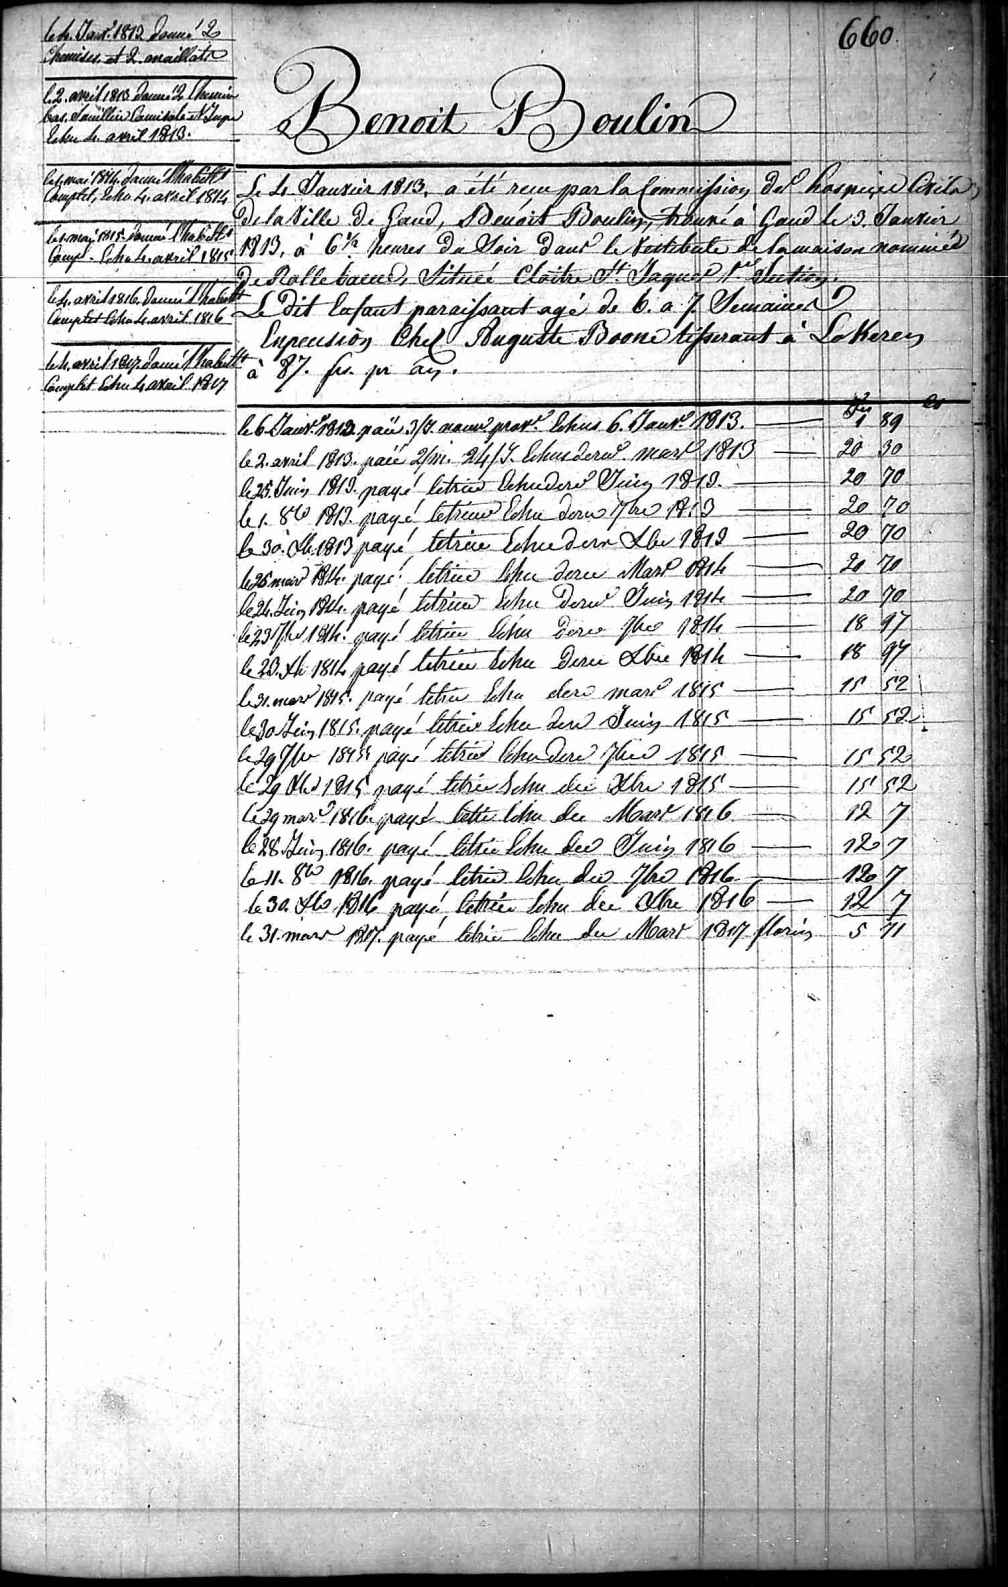 660
le 4. Janv.r 1813 donné 2
Chemises et 2. maillots
le 2. avril 1813 donné 2 Chemises
bas Camisole et Jupe
Echu 4. avril 1813.
le mai 1814. donné l'habillt
Complet, Echu 4. avril 1814
le mai 1815. donné l'habillt
Compl. Echu 4. avril 1815
le 4. avril 1816. donné l'habillt
Complet Echu 4. avril 1816
le 4. avril 1817. donné l'habillt
Complet Echu 4. avril 1817
Benoit Boulin
Le 4 Janvier 1813, a été reçu par la Commission des hospices Civils
de la Ville de Gand, Benoit Boulin, trouvé à Gand le 3. Janvier
1813, à 6 1/2 heures du Soir dans le Vestibule de la maison nommée
de Rollebaene, Située Cloitre St. Jaques 1re Section.
Le Dit Enfant paraissant agé de 6. a 7. Semaines
En pension Chez Auguste Boone tisserant à Lokeren
à 87. frs. pr an.
frs cs
le 6 Janv.r 1813 paié 3/J. nourr prov.e Echus 6. Janv.r 1813. 1 89
le 2. avril 1813. paié 2/m. 24/J. Echus derr mars 1813 20 30
le 25. Juin 1813. payé letrim Echu derr Juin 1813. 20 70
le 1. 8bre 1813. payé letrim Echu derr 7bre 1813 20 70
le 30. Xbr 1813 payé letrim Echu derr Xbre 1813 20 70
le 26 mars 1814. payé letrim Echu derr Mars 1814 20 70
le 24. Juin 1814. payé letrim Echu derr Juin 1814 20 70
le 23 7bre 1814. payé letrim Echu derr 7bre 1814 18 97
le 23. Xbr 1814 payé letrim Echu derr Xbre 1814 18 97
le 31. mars 1815. payé letrim Echu derr mars 1815 15 52
le 30 Juin 1815. payé letrim Echu derr Juin 1815 15 52
le 29 7br 1815 payé letrim Echu derr 7bre 1815 15 52
le 29 Xbre 1815 payé letrim Echu der Xbre 1815 15 52
le 29 mars 1816. payé letri Echu der Mars 1816 12 7
le 28. Juin 1816. payé letrim Echu der Juin 1816 12 7
le 11. 8bre 1816. payé letrim Echu der 7bre 1816 12 7
le 30. Xbre 1816 payé letrim Echu der Xbre 1816 12 7
le 31. mars 1817. payé letrim Echu der Mars 1817 florins 5 71